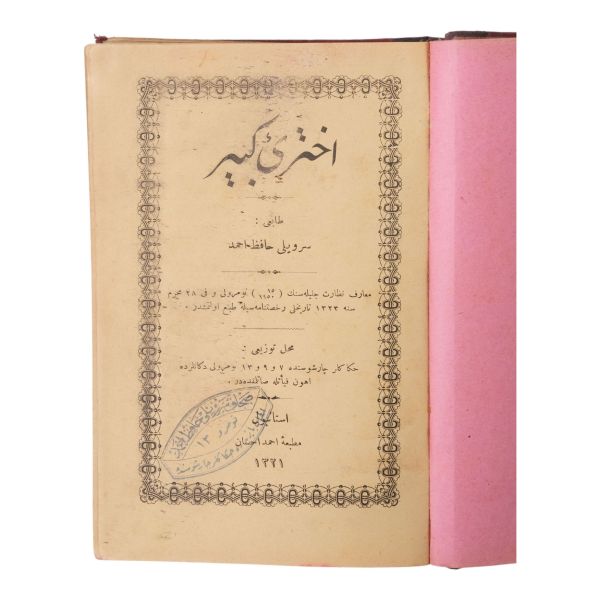 اختریٔ كبیر
طابعی :
سرویلی حافظ احمد
معارف نظارت جلیله‌سنك ( ١٥ / ١١٥٠ ) نومرولی و فی ٢٨ محرم
سنه ١٣٢٣ تاریخلی رخصتنامه‌سیله طبع اولنمشدر ٠
محل توزیعی :
حكاكلر چارشوسنده ٧ و ٩ و ١٣ نومرولی دكانلرده
اهون فیأتله صاتلمقده‌در ٠
استانبول
مطبعهٔ احمد احسان
١٣٢١
نومرو ١٣